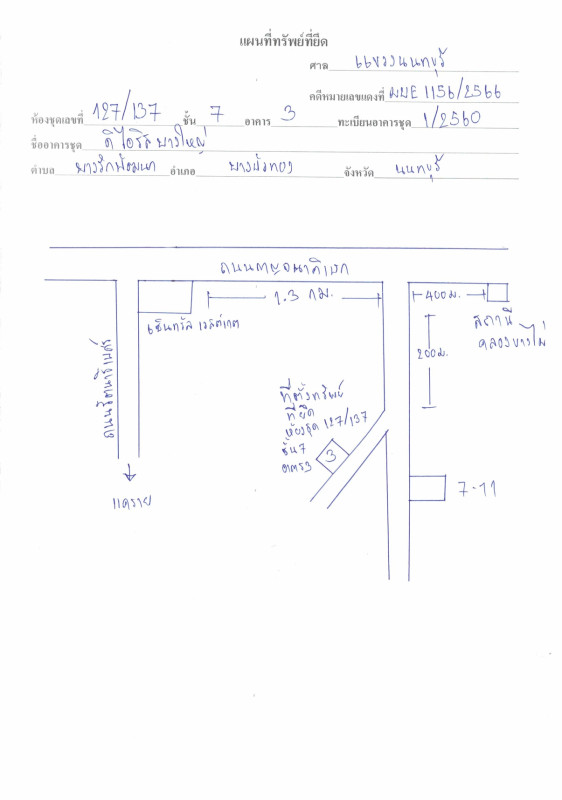 แผนที่ทรัพย์ที่ยึด
ศาล แขวงนนทบุรี
คดีหมายเลขแดงที่ ผบE 1156/2566
ห้องชุดเลขที่ 127/137 ชั้น 7 อาคาร 3 ทะเบียนอาคารชุด 1/2560
ชื่ออาคารชุด ดิ ไอริส บางใหญ่
ตำบล บางรักพัฒนา อำเภอ บางบัวทอง จังหวัด นนทบุรี
ถนนกาญจนาภิเษก
1.3 กม.
400ม.
เซ็นทรัล เวสต์เกต
สถานี
คลองบางไผ่
200ม.
ถนนรัตนาธิเบศร์
ที่ตั้งทรัพย์
ที่ยึด
ห้องชุด 127/137
ชั้น7
อาคาร3
3
7-11
แคราย